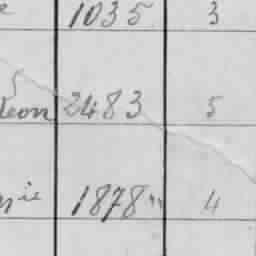 1035 3
leon 2483 5
1878 " 4